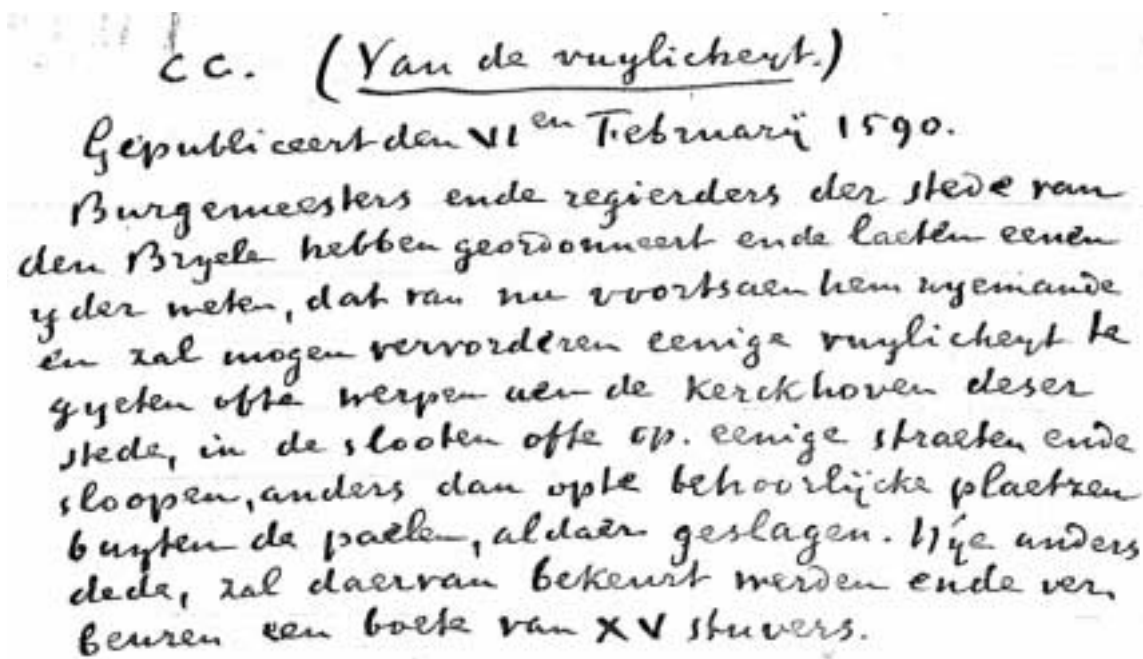 CC. (Van de vuylicheyt.)
Gepubliceert den VIen Februarij 1590.
Burgemeesters ende regierders der stede van
den Bryele hebben geordonneert ende laeten eenen
yder weten, dat van nu voortsaen hem nyemande
en zal mogen vervorderen eenige vuylicheyt te
gyeten ofte werpen aen de Kerckhoven deser
stede, in de slooten ofte op. eenige straeten ende
sloopen, anders dan opte behoorlijcke plaetzen
buyten de paelen, aldaer geslagen. Wye anders
dede, zal daervan bekeurt werden ende ver,
beuren een boete van XV stuvers.